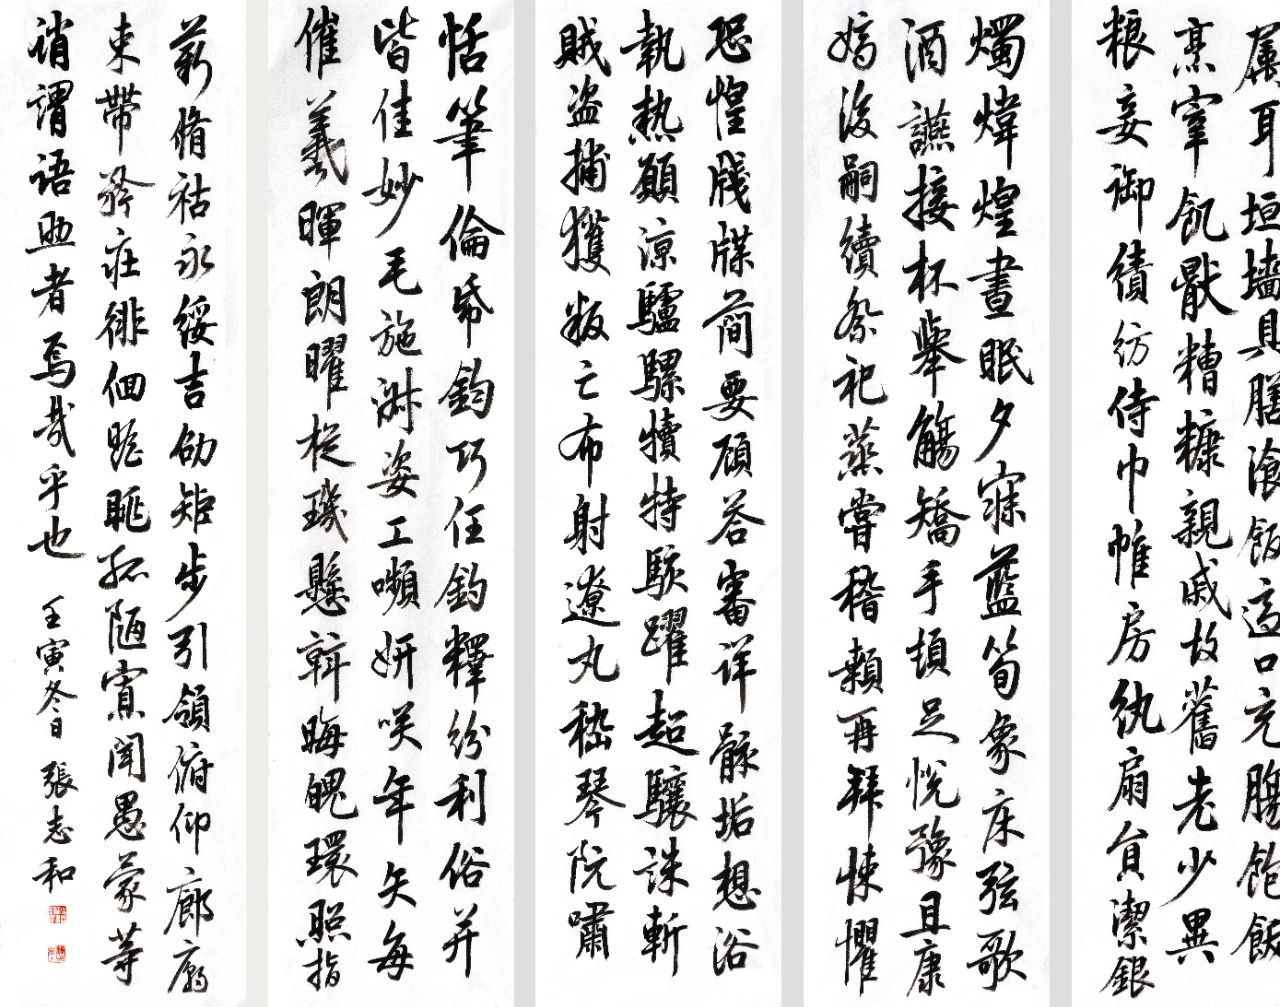 属耳垣墙具膳湌飯适口充腸飽飫
烹宰飢厭糟糠親戚故舊老少異
粮妾御績紡侍巾帷房紈扇員潔銀
燭煒煌晝眠夕寐藍筍象床弦歌
酒讌接杯舉觴矯手頓足悅豫且康
嫡後嗣續祭祀蒸嘗稽顙再拜悚懼
恐惶牋牒簡要顧答審詳骸垢想浴
執熱願涼驢騾犢特駭躍超驤誅斬
賊盜捕獲叛亡布射遼丸嵇琴阮嘯
恬筆倫紙鈞巧任釣釋紛利俗并
皆佳妙毛施淑姿工嚬妍咲年矢每
催羲暉朗曜旋璣懸斡晦魄環照指
薪脩祜永綏吉劭矩步引領俯仰廊廟
束帶矜莊徘佪瞻眺孤陋寡聞愚蒙等
誚謂語助者焉哉乎也 壬寅冬日 張志和